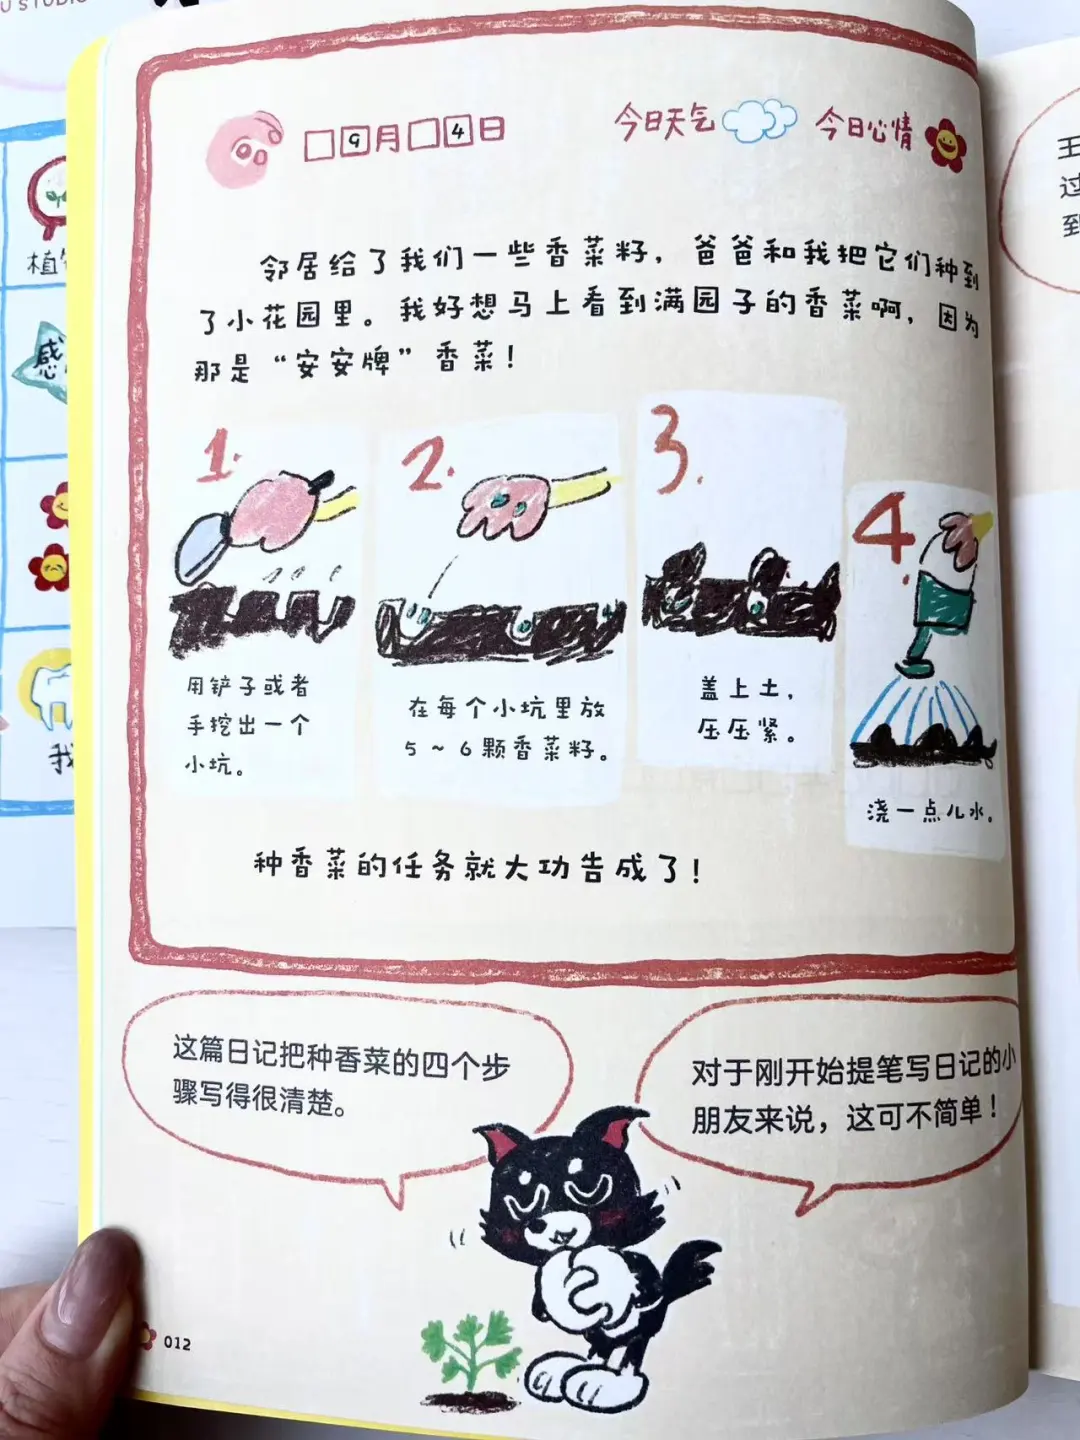 U STUDIO
□9月□4日 今日天气 今日心情
邻居给了我们一些香菜籽，爸爸和我把它们种到
了小花园里。我好想马上看到满园子的香菜啊，因为
那是“安安牌”香菜！
1.
用铲子或者
手挖出一个
小坑。
2.
在每个小坑里放
5～6颗香菜籽。
3.
盖上土，
压压紧。
4.
浇一点儿水。
种香菜的任务就大功告成了！
这篇日记把种香菜的四个步
骤写得很清楚。
对于刚开始提笔写日记的小
朋友来说，这可不简单！
012
植
感
我
王
过
到